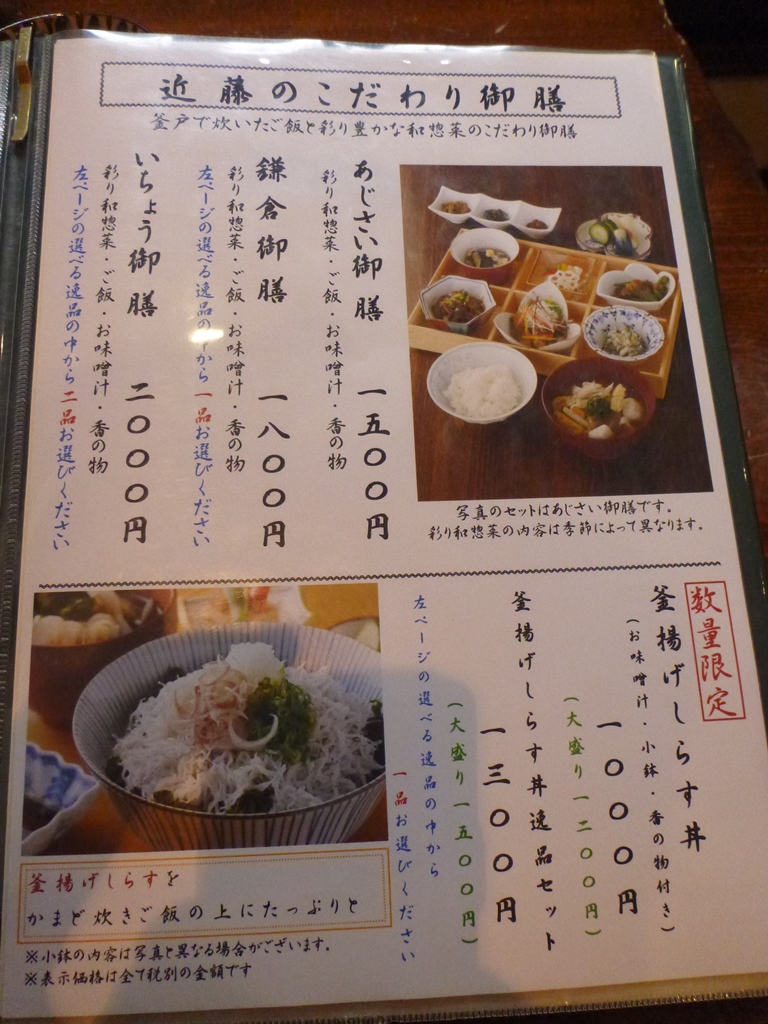 近藤のこだわり御膳
釜戸で炊いたご飯と彩り豊かな和惣菜のこだわり御膳
あじさい御膳 一五〇〇円
彩り和惣菜・ご飯・お味噌汁・香の物
鎌倉御膳 一八〇〇円
彩り和惣菜・ご飯・お味噌汁・香の物
左ページの選べる逸品の中から一品お選びください
いちょう御膳 二〇〇〇円
彩り和惣菜・ご飯・お味噌汁・香の物
左ページの選べる逸品の中から二品お選びください
写真のセットはあじさい御膳です。
彩り和惣菜の内容は季節によって異なります。
数量限定
釜揚げしらす丼
(お味噌汁・小鉢・香の物付き)
一〇〇〇円
(大盛り一二〇〇円)
釜揚げしらす丼逸品セット
一三〇〇円
(大盛り一五〇〇円)
左ページの選べる逸品の中から
一品お選びください
釜揚げしらすを
かまど炊きご飯の上にたっぷりと
※小鉢の内容は写真と異なる場合がございます。
※表示価格は全て税別の金額です